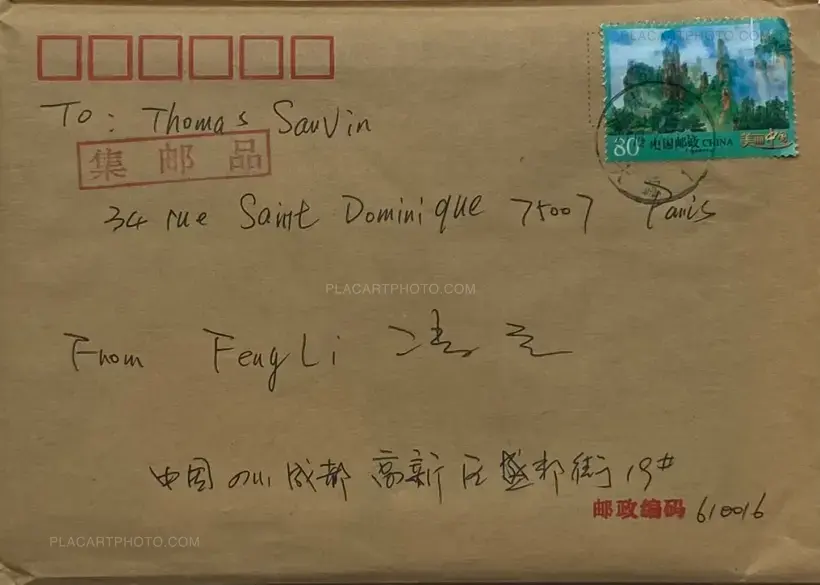 PLACARTPHOTO.COM
80分 中国邮政 CHINA 美丽中国
To: Thomas Sauvin
集邮品
34 rue Saint Dominique 75007 Paris
PLACARTPHOTO.COM
From Feng Li 冯立
中国四川成都高新区盛邦街19#
邮政编码 610016
PLACARTPHOTO.COM